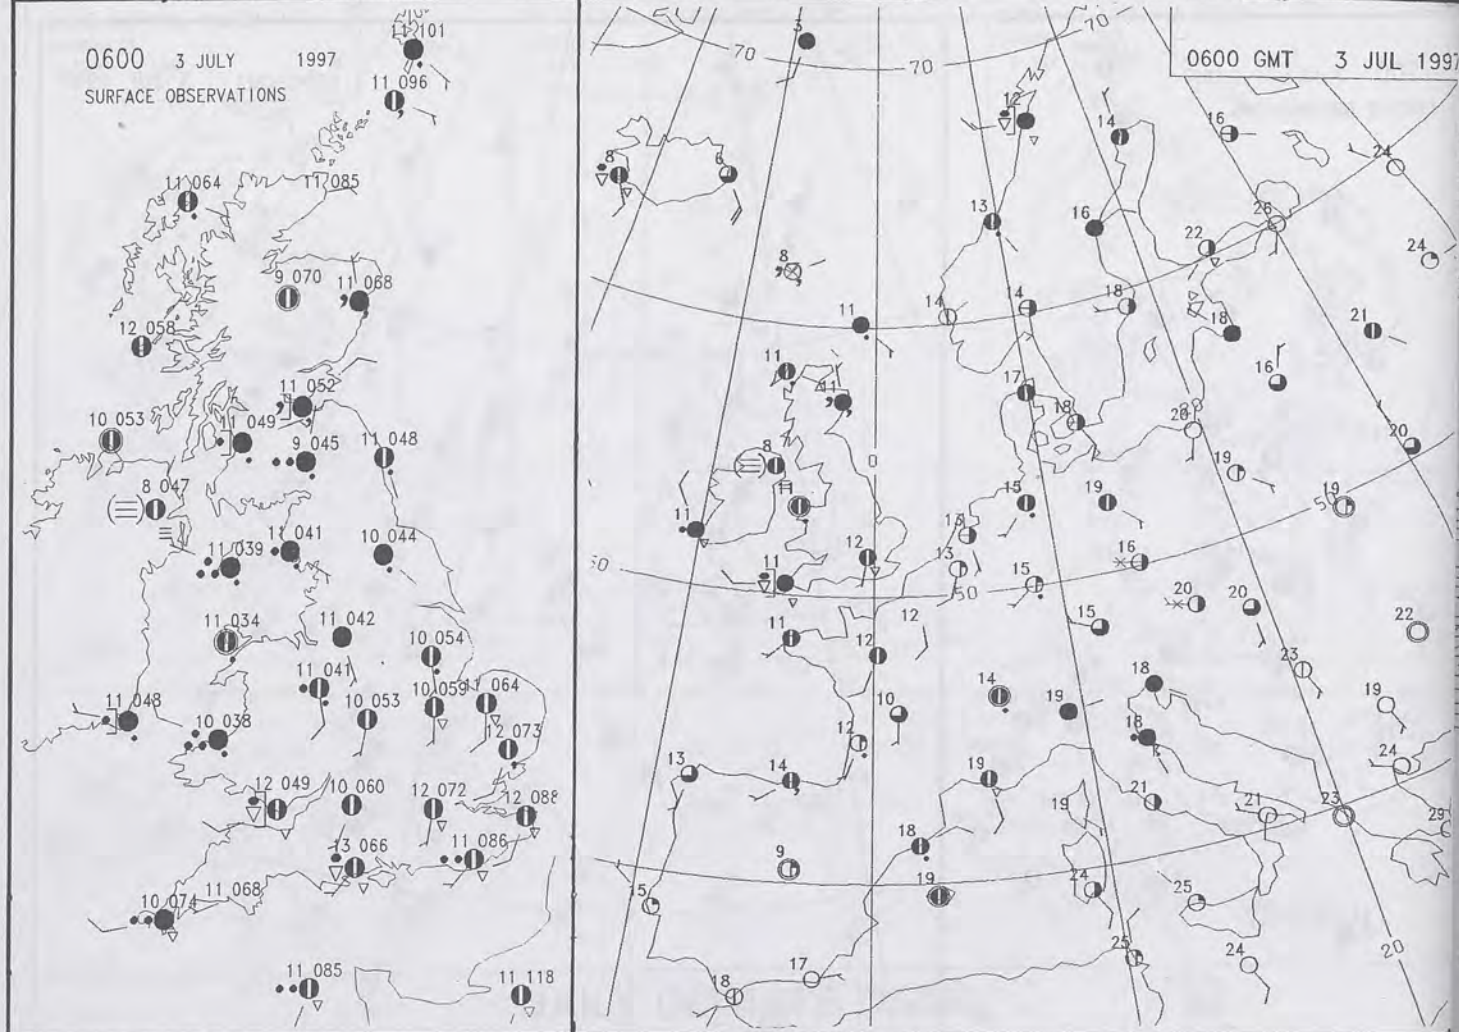 0600 3 JULY 1997
SURFACE OBSERVATIONS
11 101
11 096
11 064
11 085
9 070
11 068
12 058
11 052
10 053
11 049
9 045
11 048
8 047
11 041
10 044
11 039
11 034
11 042
10 054
11 041
10 059
11 064
11 048
10 053
10 038
12 073
12 049
10 060
12 072
12 088
13 066
11 086
11 068
10 074
11 085
11 118
0600 GMT 3 JUL 1997
70
70
70
12
14
16
24
8
6
13
16
26
22
24
8
14
14
18
11
18
21
11
16
11
17
18
20
20
8
0
19
19
50
11
15
19
11
13
12
16
13
15
50
11
20
20
12
15
22
11
12
23
18
14
19
19
10
18
12
24
13
14
19
21
21
23
19
29
18
9
19
24
25
15
25
24
20
17
18